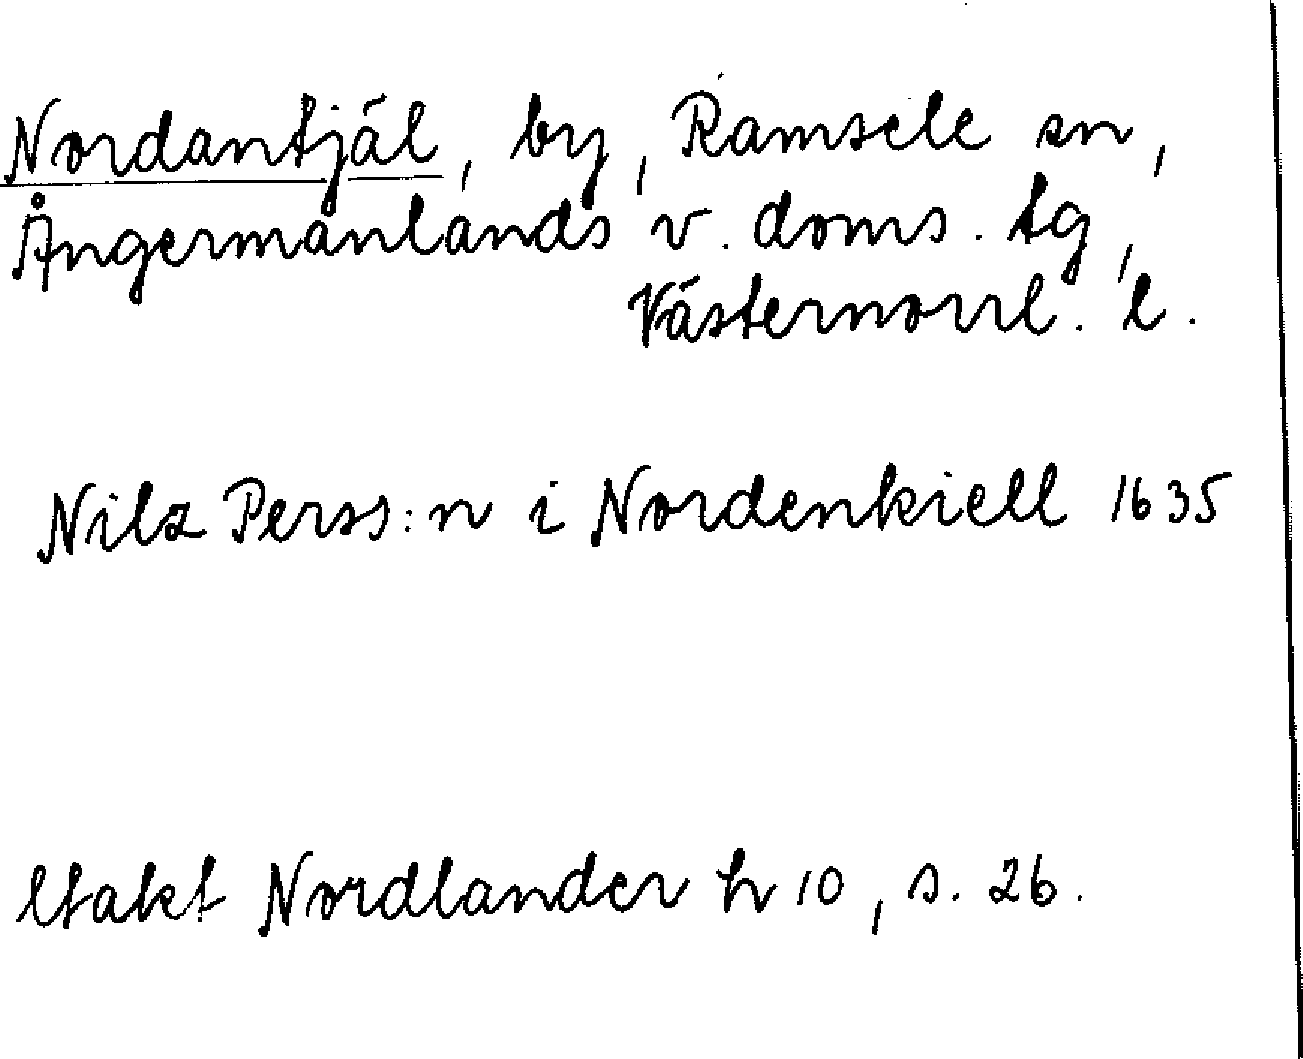 Nordantjäl, by, Ramsele sn,
Ångermanlands v. doms. tg,
Västernorrl. l.
Nils Perss:n i Nordenkiell 1635
Utakt Nordlander h 10, s. 26.